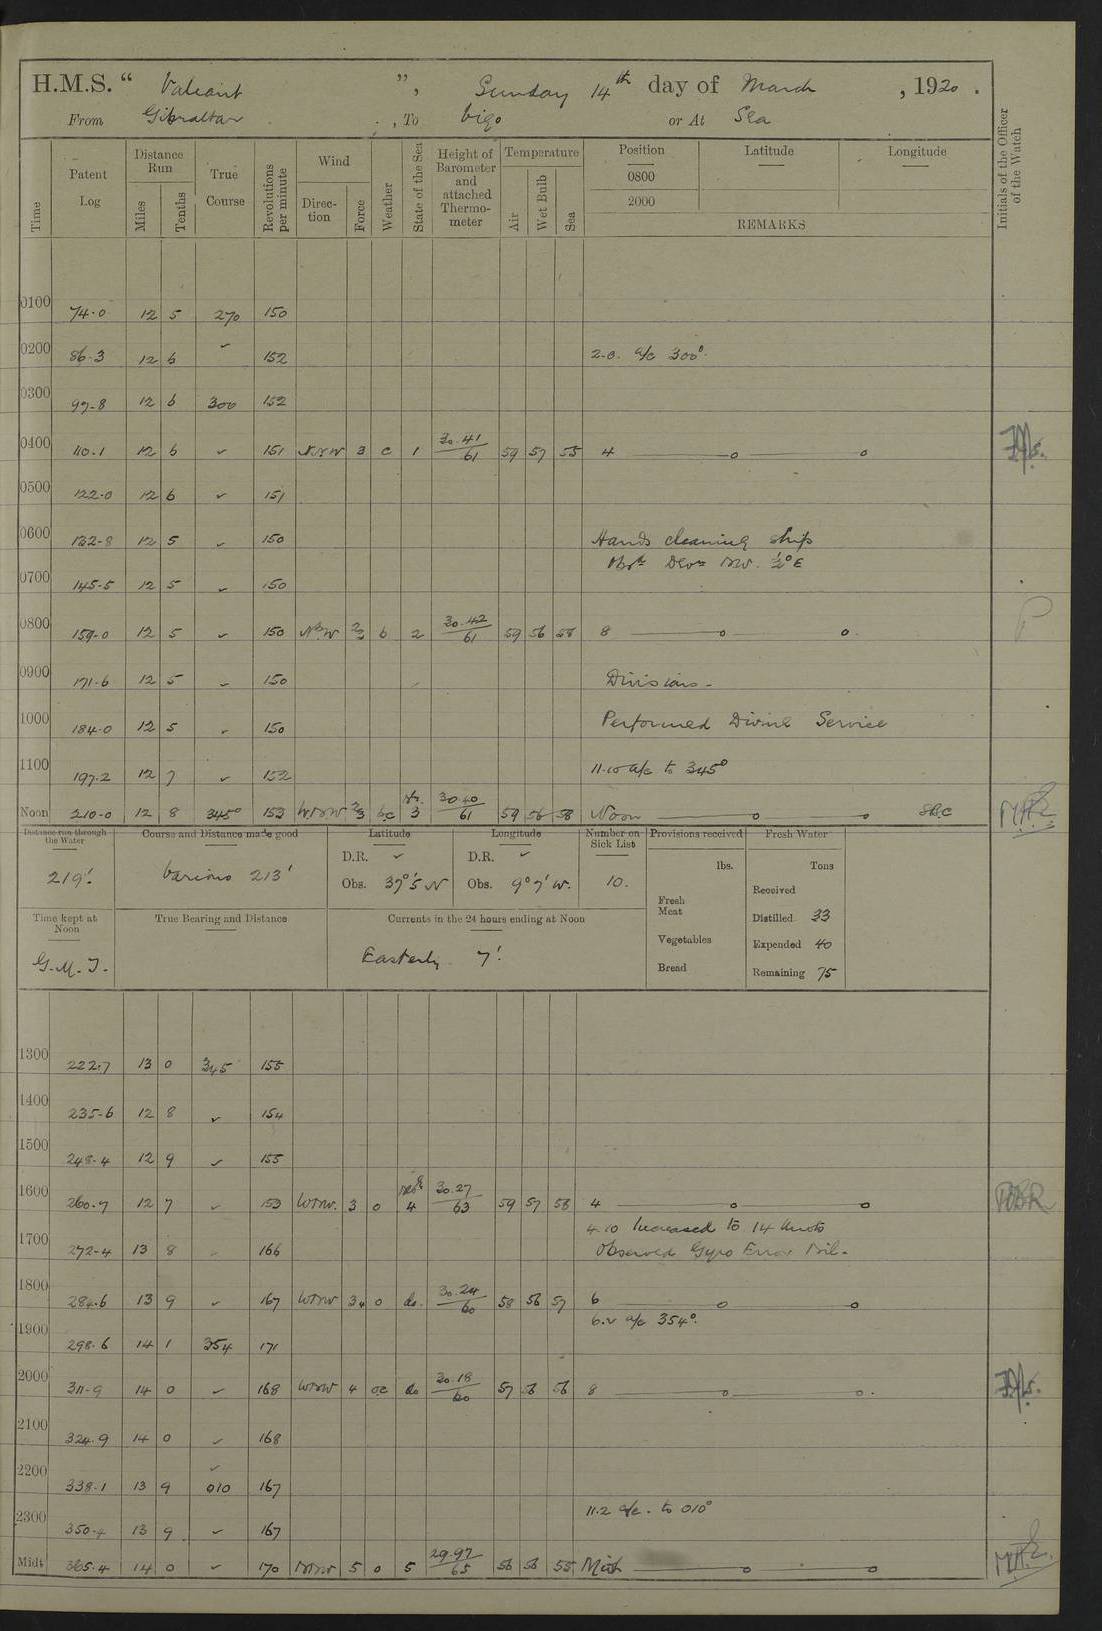 H.M.S. “ Valiant ”, Sunday 14th day of March, 1920.
From Gibraltar, To Vigo or At Sea
Time Patent Log Distance Run Miles Tenths True Course Revolutions per minute Wind Direction Force Weather State of the Sea Height of Barometer and attached Thermometer Temperature Air Wet Bulb Sea Position 0800 2000 Latitude Longitude
REMARKS
Initials of the Officer of the Watch
0100 74.0 12 5 270 150
0200 86.3 12 6 ✓ 152 2.0. a/c 300°.
0300 97.8 12 6 300 152
0400 110.1 12 6 ✓ 151 NNW 3 c 1 30.41/61 59 57 55 4
0500 122.0 12 6 ✓ 151
0600 132.8 12 5 ✓ 150 Hands cleaning ship
0700 145.5 12 5 ✓ 150 ½°E
0800 159.0 12 5 ✓ 150 NBW 2/3 b 2 30.42/61 59 56 58 8
0900 171.6 12 5 ✓ 150 Divisions.
1000 184.0 12 5 ✓ 150 Performed Divine Service
1100 197.2 12 7 ✓ 152 11.10 a/c to 345°
Noon 210.0 12 8 345° 153 WNW 2/3 bc 3 30.40/61 59 56 58 Noon
Distance run through the Water Course and Distance made good Latitude Longitude Number on Sick List Provisions received Fresh Water
219'. Various 213' D.R. ✓ D.R. ✓ 10. lbs. Tons
Obs. 37°5'N Obs. 9°7'W. Received
Fresh Meat
Time kept at Noon True Bearing and Distance Currents in the 24 hours ending at Noon Distilled 33
Vegetables Expended 40
G.M.T. Easterly 7'. Bread Remaining 75
1300 222.7 13 0 345 155
1400 235.6 12 8 ✓ 154
1500 248.4 12 9 ✓ 155
1600 260.7 12 7 ✓ 153 WNW. 3 o 4 30.27/63 59 57 58 4
4.10 Increased to 14 knots
1700 272.4 13 8 ✓ 166 Observed Gyro Error Nil.
1800 284.6 13 9 ✓ 167 WNW 3 4 o do. 30.24/60 58 56 57 6
6.v a/c 354°.
1900 298.6 14 1 354 171
2000 311.9 14 0 ✓ 168 WNW 4 oc do 30.18/60 57 56 56 8
2100 324.9 14 0 ✓ 168
2200 338.1 13 9 010 167
11.2 a/c. to 010°
2300 350.4 13 9 ✓ 167
Midt 365.4 14 0 ✓ 170 NNW 5 o 5 29.97/65 56 56 55 Midt